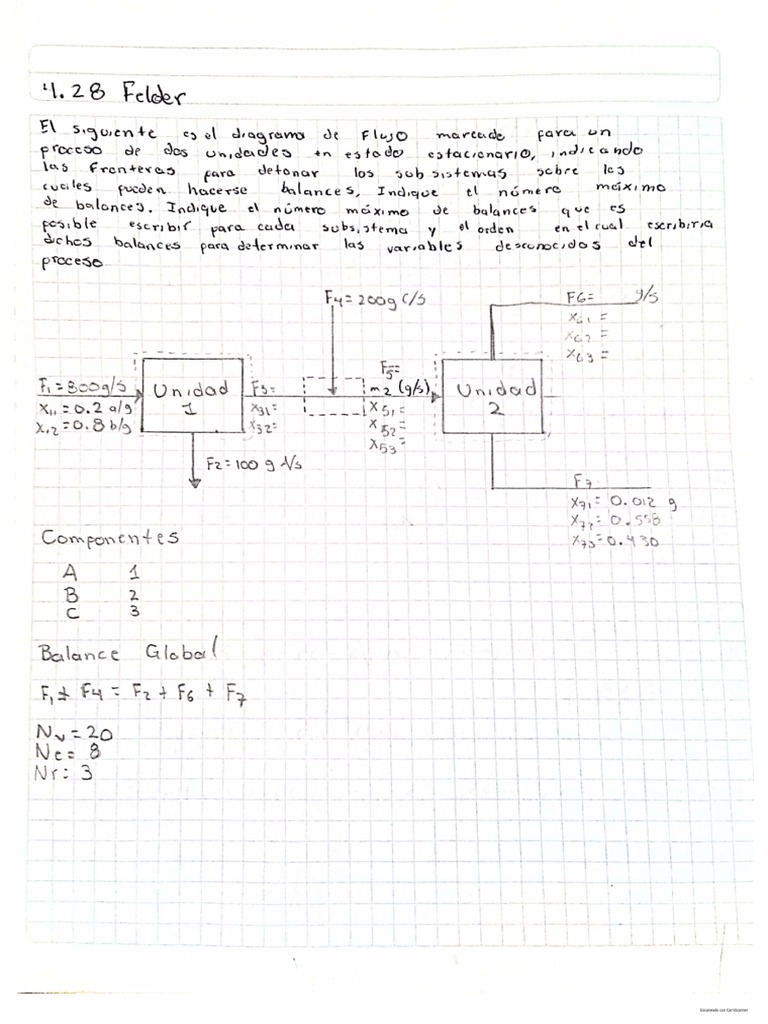 4.28 Felder
El siguiente es el diagrama de Flujo marcade para un
proceso de dos unidades en estado estacionario, indicando
las Fronteras para detonar los subsistemas sobre los
cuales pueden hacerse balances, Indique el número máximo
de balances. Indique el número máximo de balances que es
posible escribir para cada subsistema y el orden en el cual escribiria
dichos balances para determinar las variables desconocidos del
proceso
F4=200g C/s
F6= g/s
x61=
x62=
x63=
F1=800g/s
x11=0.2 a/g
x12=0.8 b/g
Unidad
1
F3=
x31=
x32=
F5=
m2 (g/s)
x51=
x52=
x53=
Unidad
2
F2=100 g A/s
F7
x71=0.012 g
x72=0.558
x73=0.430
Componentes
A 1
B 2
C 3
Balance Global
F1+F4=F2+F6+F7
Nv=20
Nc=8
Nr:3
Escaneado con CamScanner